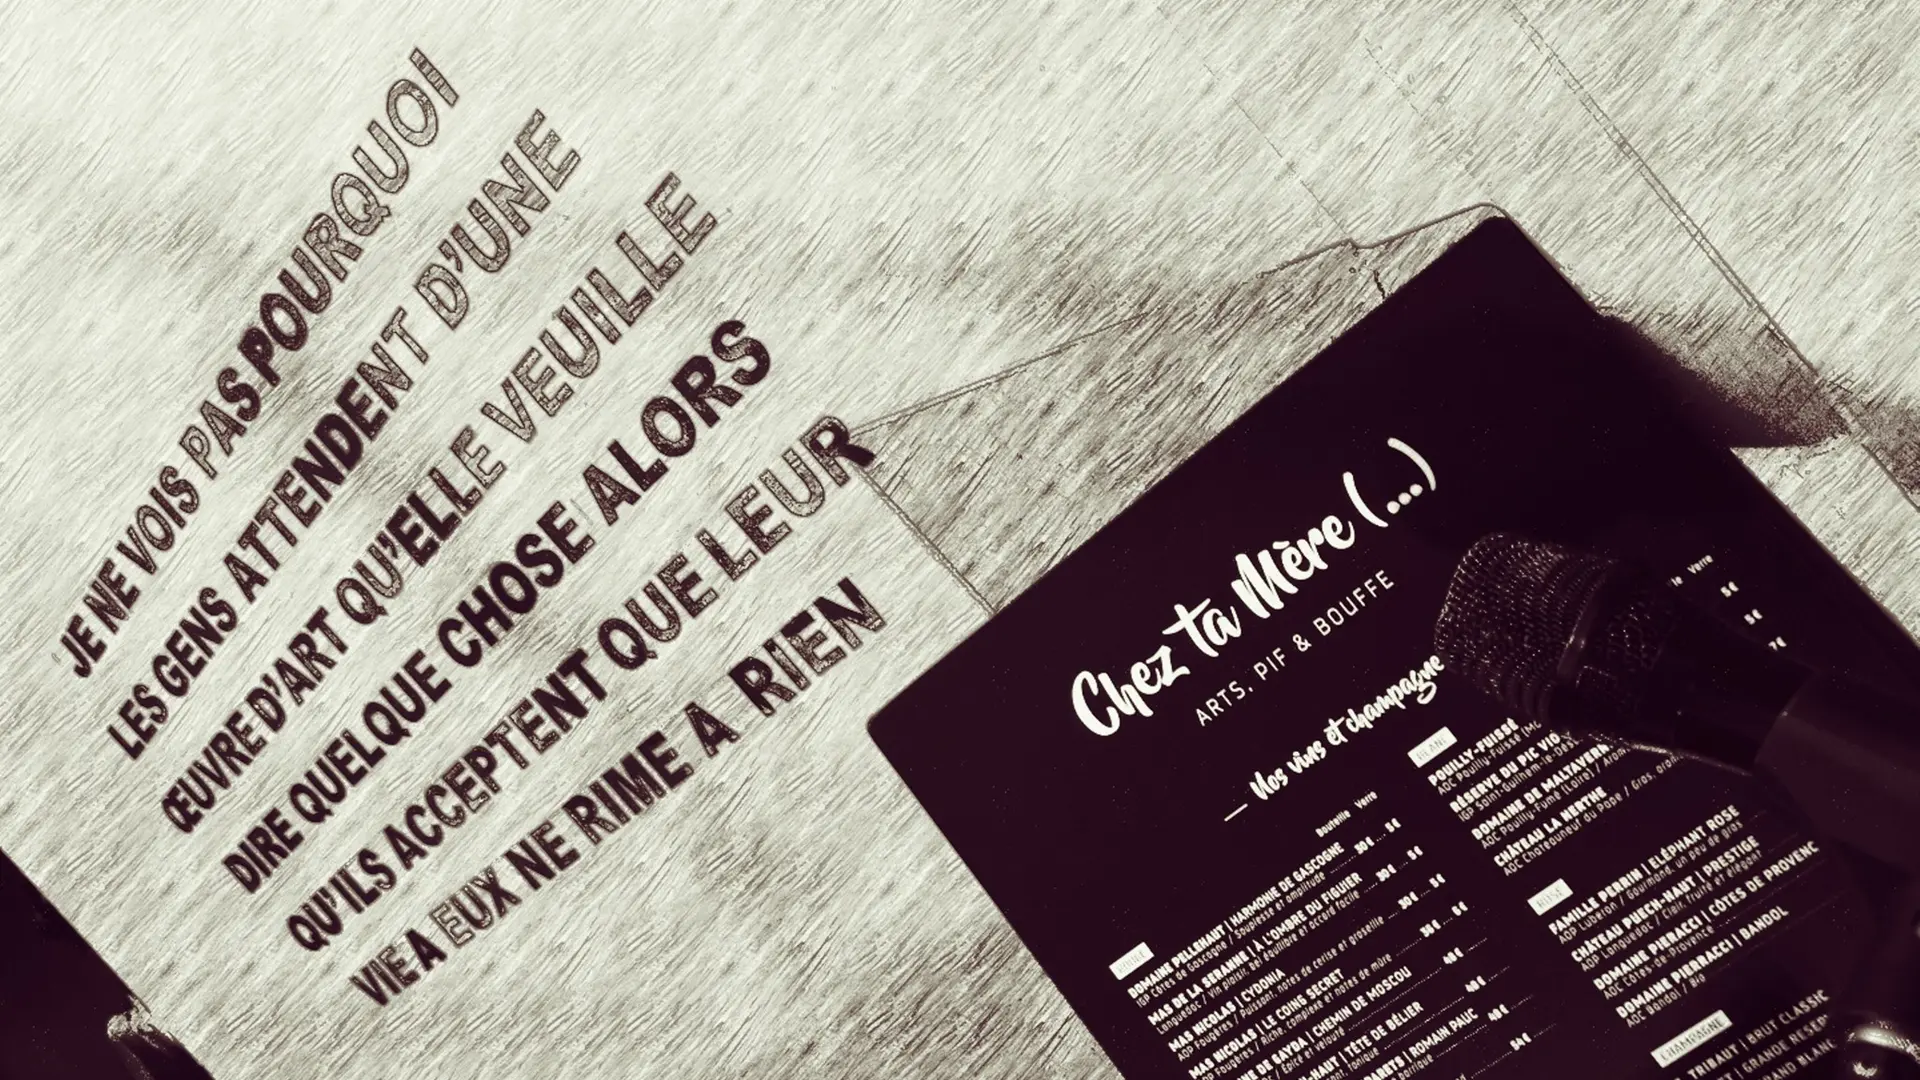 JE NE VOIS PAS POURQUOI
LES GENS ATTENDENT D'UNE
ŒUVRE D'ART QU'ELLE VEUILLE
DIRE QUELQUE CHOSE ALORS
QU'ILS ACCEPTENT QUE LEUR
VIE A EUX NE RIME A RIEN
Chez ta Mère (...)
ARTS, PIF & BOUFFE
Nos vins et champagne
Bouteille Verre
DOMAINE PELLEHAUT | HARMONIE DE GASCOGNE
IGP Côtes de Gascogne / Souplesse et amplitude
MAS DE LA SERANNE | À L'OMBRE DU FIGUIER
Languedoc / Vin plaisir, bel équilibre et accord facile
MAS NICOLAS | CYDONIA
AOP Faugères / Puissant, notes de cerise et groseille
MAS NICOLAS | LE COING SECRET
AOP Faugères / Riche, complexe et notes de mûre
DE BAYDA | CHEMIN DE MOSCOU
/ Épicé et velouré
TÊTE DE BÉLIER
ROMAIN PAUC
Verre
5€
5€
7€
BLANC
POUILLY-FUISSÉ
AOC Pouilly-Fuissé
RÉSERVE DU PIC
IGP Saint-Guilhem-le-Dés
DOMAINE DE MALTAVERN
AOC Pouilly-Fumé (Loire)
CHÂTEAU LA NERTHE
AOC Chateauneuf du Pape / Gras,
ROSÉ
FAMILLE PERRIN | ÉLÉPHANT ROSE
AOP Luberon / Gourmand, un peu de gras
CHÂTEAU PUECH-HAUT | PRESTIGE
AOP Languedoc / Clair, fruité et élégant
DOMAINE PIERACCI | CÔTES DE PROVENC
AOC Côtes-de-Provence
DOMAINE PIERRACCI | BANDOL
AOC Bandol / Bio
CHAMPAGNE
TRIBAUT | BRUT CLASSIC
GRANDE RESER
GRAND BLANC